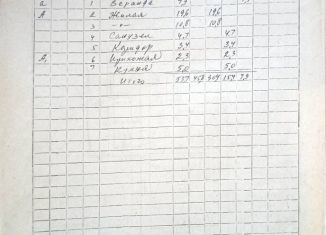 а 1 Веранда 7,9
А 2 Жилая 19,6 19,6
3 -"- 10,8 10,8
4 Санузел 4,7 4,7
5 Коридор 3,4 3,4
А, 6 Прихожая 2,3 2,3
7 Кухня 5,0 5,0
Итого 15,4 7,9